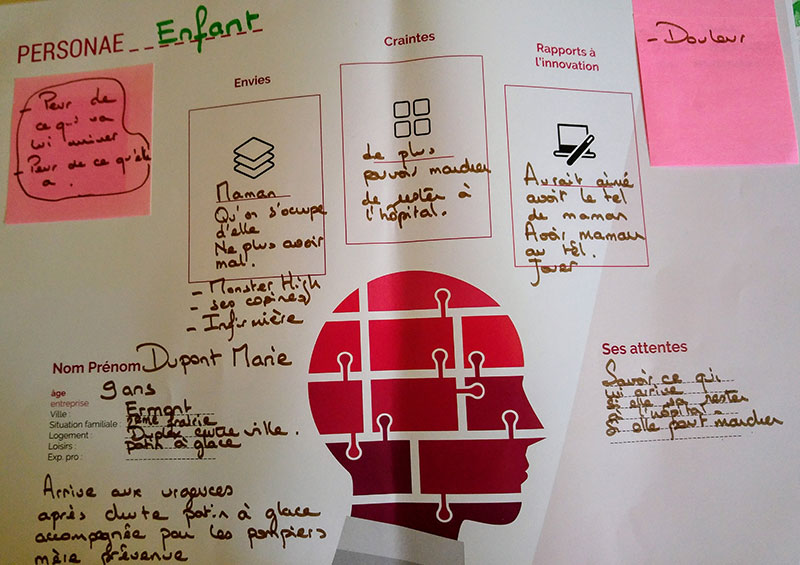 PERSONAE Enfant
- Peur de
ce qui va
lui arriver
- Peur de ce qu'elle
a.
Envies
Maman
Qu'on s'occupe
d'elle
Ne plus avoir
mal.
- Monster High
- ses copines
- Infirmière
Craintes
de plus
pouvoir marcher
de rester à
l'hôpital.
Rapports à
l'innovation
Aurait aimé
avoir le tel
de maman
Avoir maman
au tél.
Jouer
- Douleur
Nom Prénom Dupont Marie
âge 9 ans
entreprise
Ville : Ermont
Situation familiale :
Logement : Duplex centre ville.
Loisirs : patin à glace
Exp. pro :
Arrive aux urgences
après chute patin à glace
accompagnée par les pompiers
mère prévenue
Ses attentes
Savoir ce qui
lui arrive
si elle va rester
à l'hôpital
si elle peut marcher